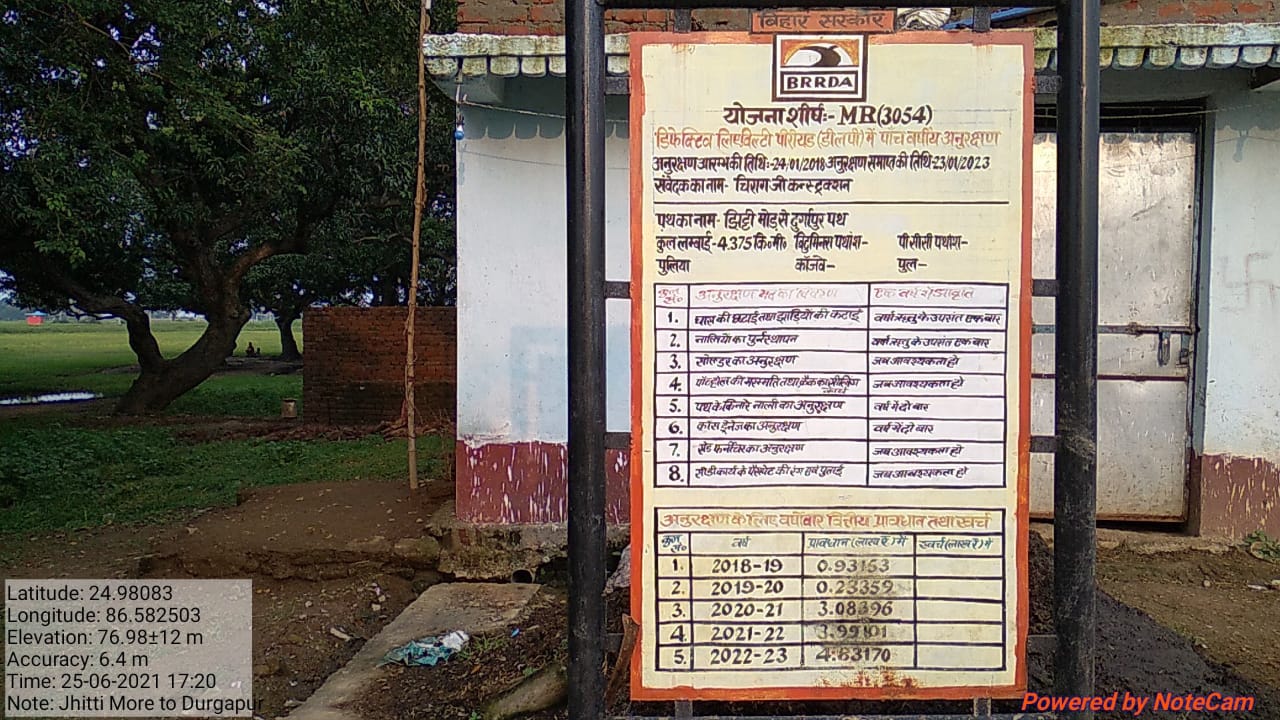 बिहार सरकार
BRRDA
योजना शीर्ष:- MR(3054)
डिफेक्टिव लिएविल्टी पीरीयड (डीलपी) में पाँच वर्षीय अनुरक्षण
अनुरक्षण आरम्भ की तिथि:-24/01/2018 अनुरक्षण समाप्त की तिथि-23/01/2023
संवेदक का नाम- चिराग जी कन्स्ट्रक्शन
पथ का नाम- झिट्टी मोड़ से दुर्गापुर पथ
कुल लम्बाई-4.375 कि॰मी॰ बिटुमिनस पथांश- पी सी सी पथांश-
पुलिया कॉजवे- पुल-
सं॰ अनुरक्षण मद का विवरण एक वर्ष में आवृति
1. घास की छटाई तथा झाड़ियों की कटाई वर्षा ऋतु के उपरांत एक बार
2. नालियों का पुर्नस्थापन वर्षा ऋतु के उपरांत एक बार
3. सोल्डर का अनुरक्षण जब आवश्यकता हो
4. पॉटहोल की मरम्मति तथा क्रैक का सीलिंग कार्य जब आवश्यकता हो
5. पथ के किनारे नाली का अनुरक्षण वर्ष में दो बार
6. क्रास ड्रेनेज का अनुरक्षण वर्ष में दो बार
7. रोड फर्नीचर का अनुरक्षण जब आवश्यकता हो
8. सीडी कार्य के पैरापेट की रंग एवं पुताई जब आवश्यकता हो
अनुरक्षण के लिए वर्षवार वित्तीय प्रावधान तथा खर्च
सं॰ वर्ष प्रावधान (लाख रू॰) में खर्च (लाख रू॰) में
1. 2018-19 0.93153
2. 2019-20 0.23359
3. 2020-21 3.08396
4. 2021-22 3.99101
5. 2022-23 4.83170
Latitude: 24.98083
Longitude: 86.582503
Elevation: 76.98±12 m
Accuracy: 6.4 m
Time: 25-06-2021 17:20
Note: Jhitti More to Durgapur
Powered by NoteCam